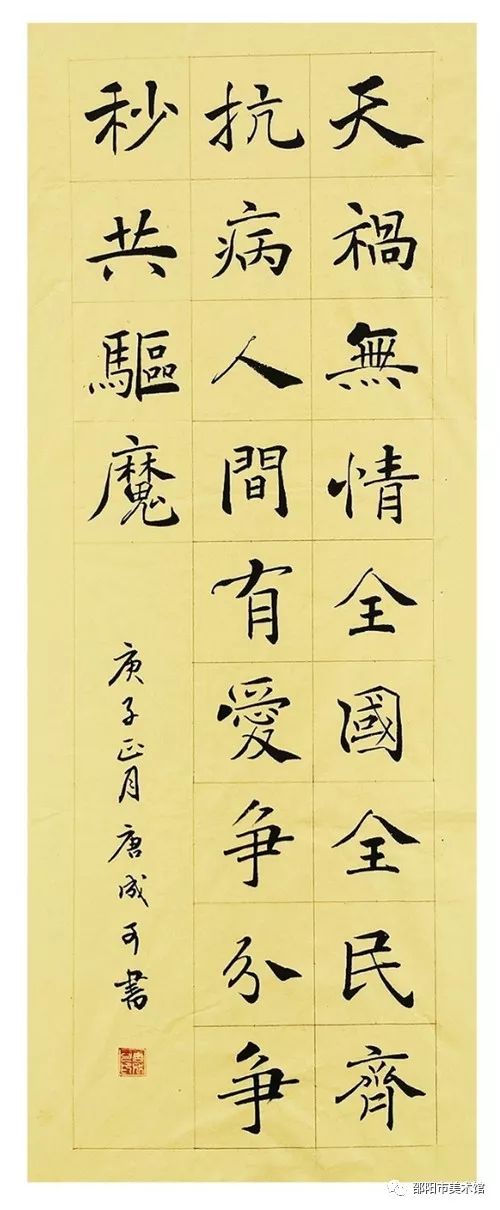 天禍無情全國全民齊
抗病人間有愛爭分爭
秒共驅魔
庚子正月唐成可書
邵阳市美术馆